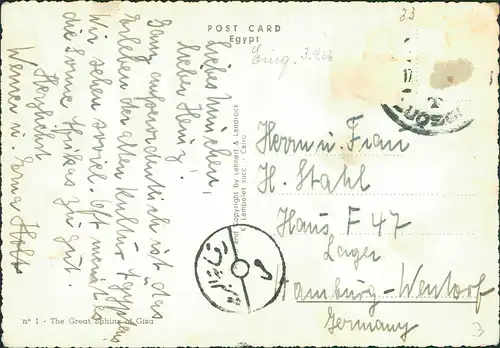 POST CARD
Egypt
Eing. 3.4.56
33
17
LUXOR
Liebes Münichen,
lieber Heinz!
Ganz außerordentlich ist das
Erleben der alten Kultur Ägyptens
Wir sehen soviel. Oft meint es
die Sonne Afrikas zu gut.
Herzlichst
Werner u. Erna
Herrn u. Frau
H. Stahl
Haus F 47
Lager
Hamburg-Wentorf
Germany
Copyright by Lehnert & Landrock
K. Lambelet succ. - Cairo
n° 1 - The Great Sphinx of Giza
3